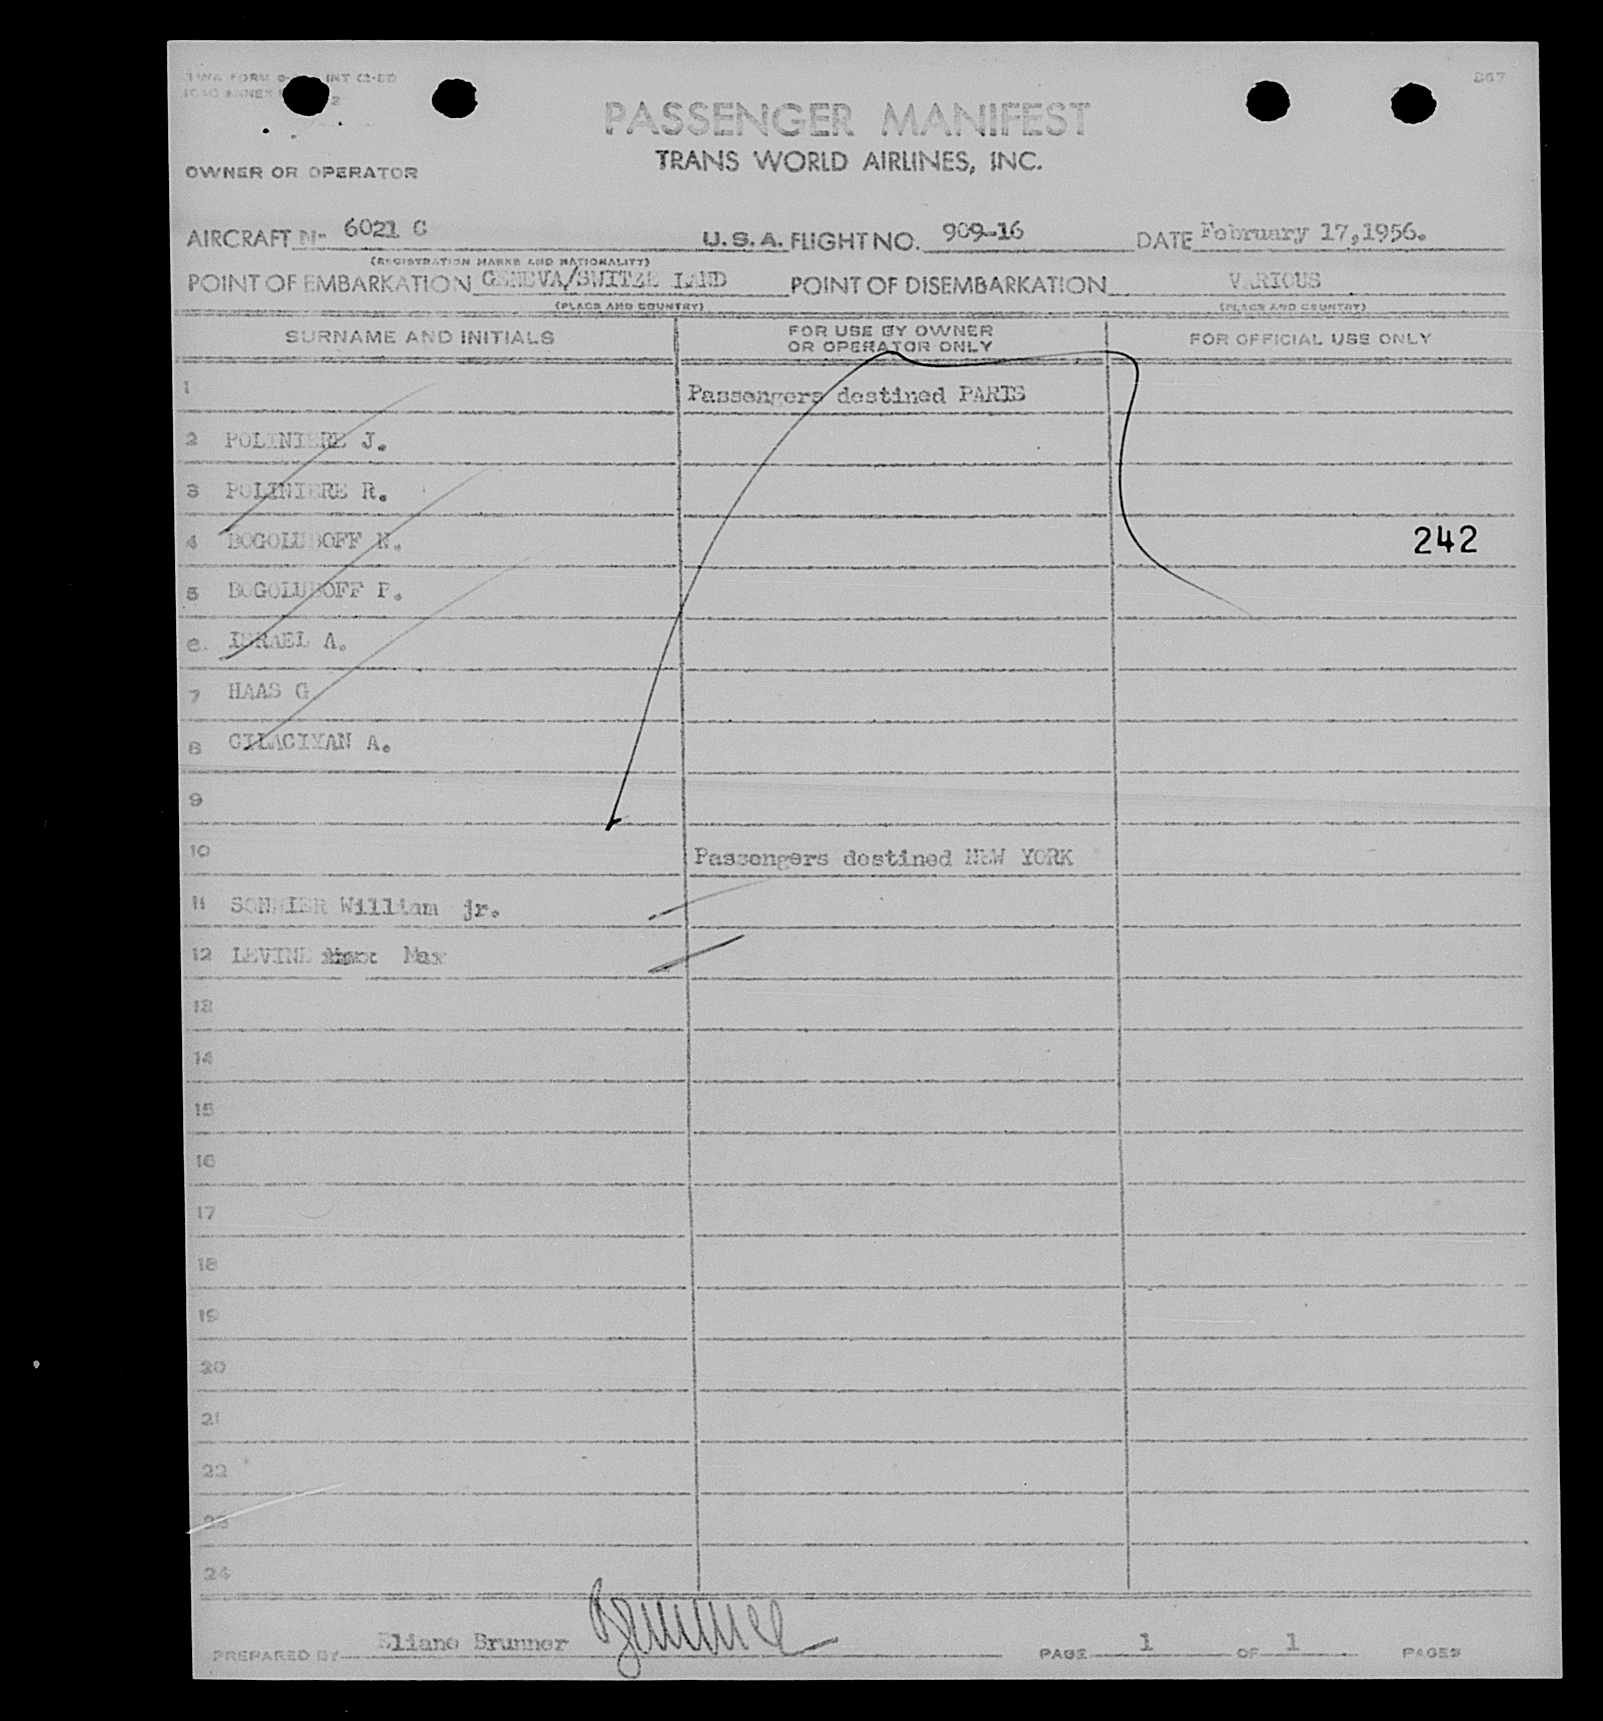 267
PASSENGER MANIFEST
TRANS WORLD AIRLINES, INC.
OWNER OR OPERATOR
AIRCRAFT N- 6021 C U.S.A. FLIGHT NO. 909-16 DATE February 17,1956.
(REGISTRATION MARKS AND NATIONALITY)
POINT OF EMBARKATION GENEVA/SWITZE LAND POINT OF DISEMBARKATION VARIOUS
(PLACE AND COUNTRY) (PLACE AND COUNTRY)
SURNAME AND INITIALS FOR USE BY OWNER OR OPERATOR ONLY FOR OFFICIAL USE ONLY
1 Passengers destined PARIS
2 POLINIERE J.
3 POLINIERE R.
4 BOGOLUBOFF N. 242
5 BOGOLUBOFF P.
6. ISRAEL A.
7 HAAS G.
8 GILACIYAN A.
9
10 Passengers destined NEW YORK
11 William jr.
12 LEVINE Max
13
14
15
16
17
18
19
20
21
22
23
24
PREPARED BY Eliane Brunner Brunner PAGE 1 OF 1 PAGES